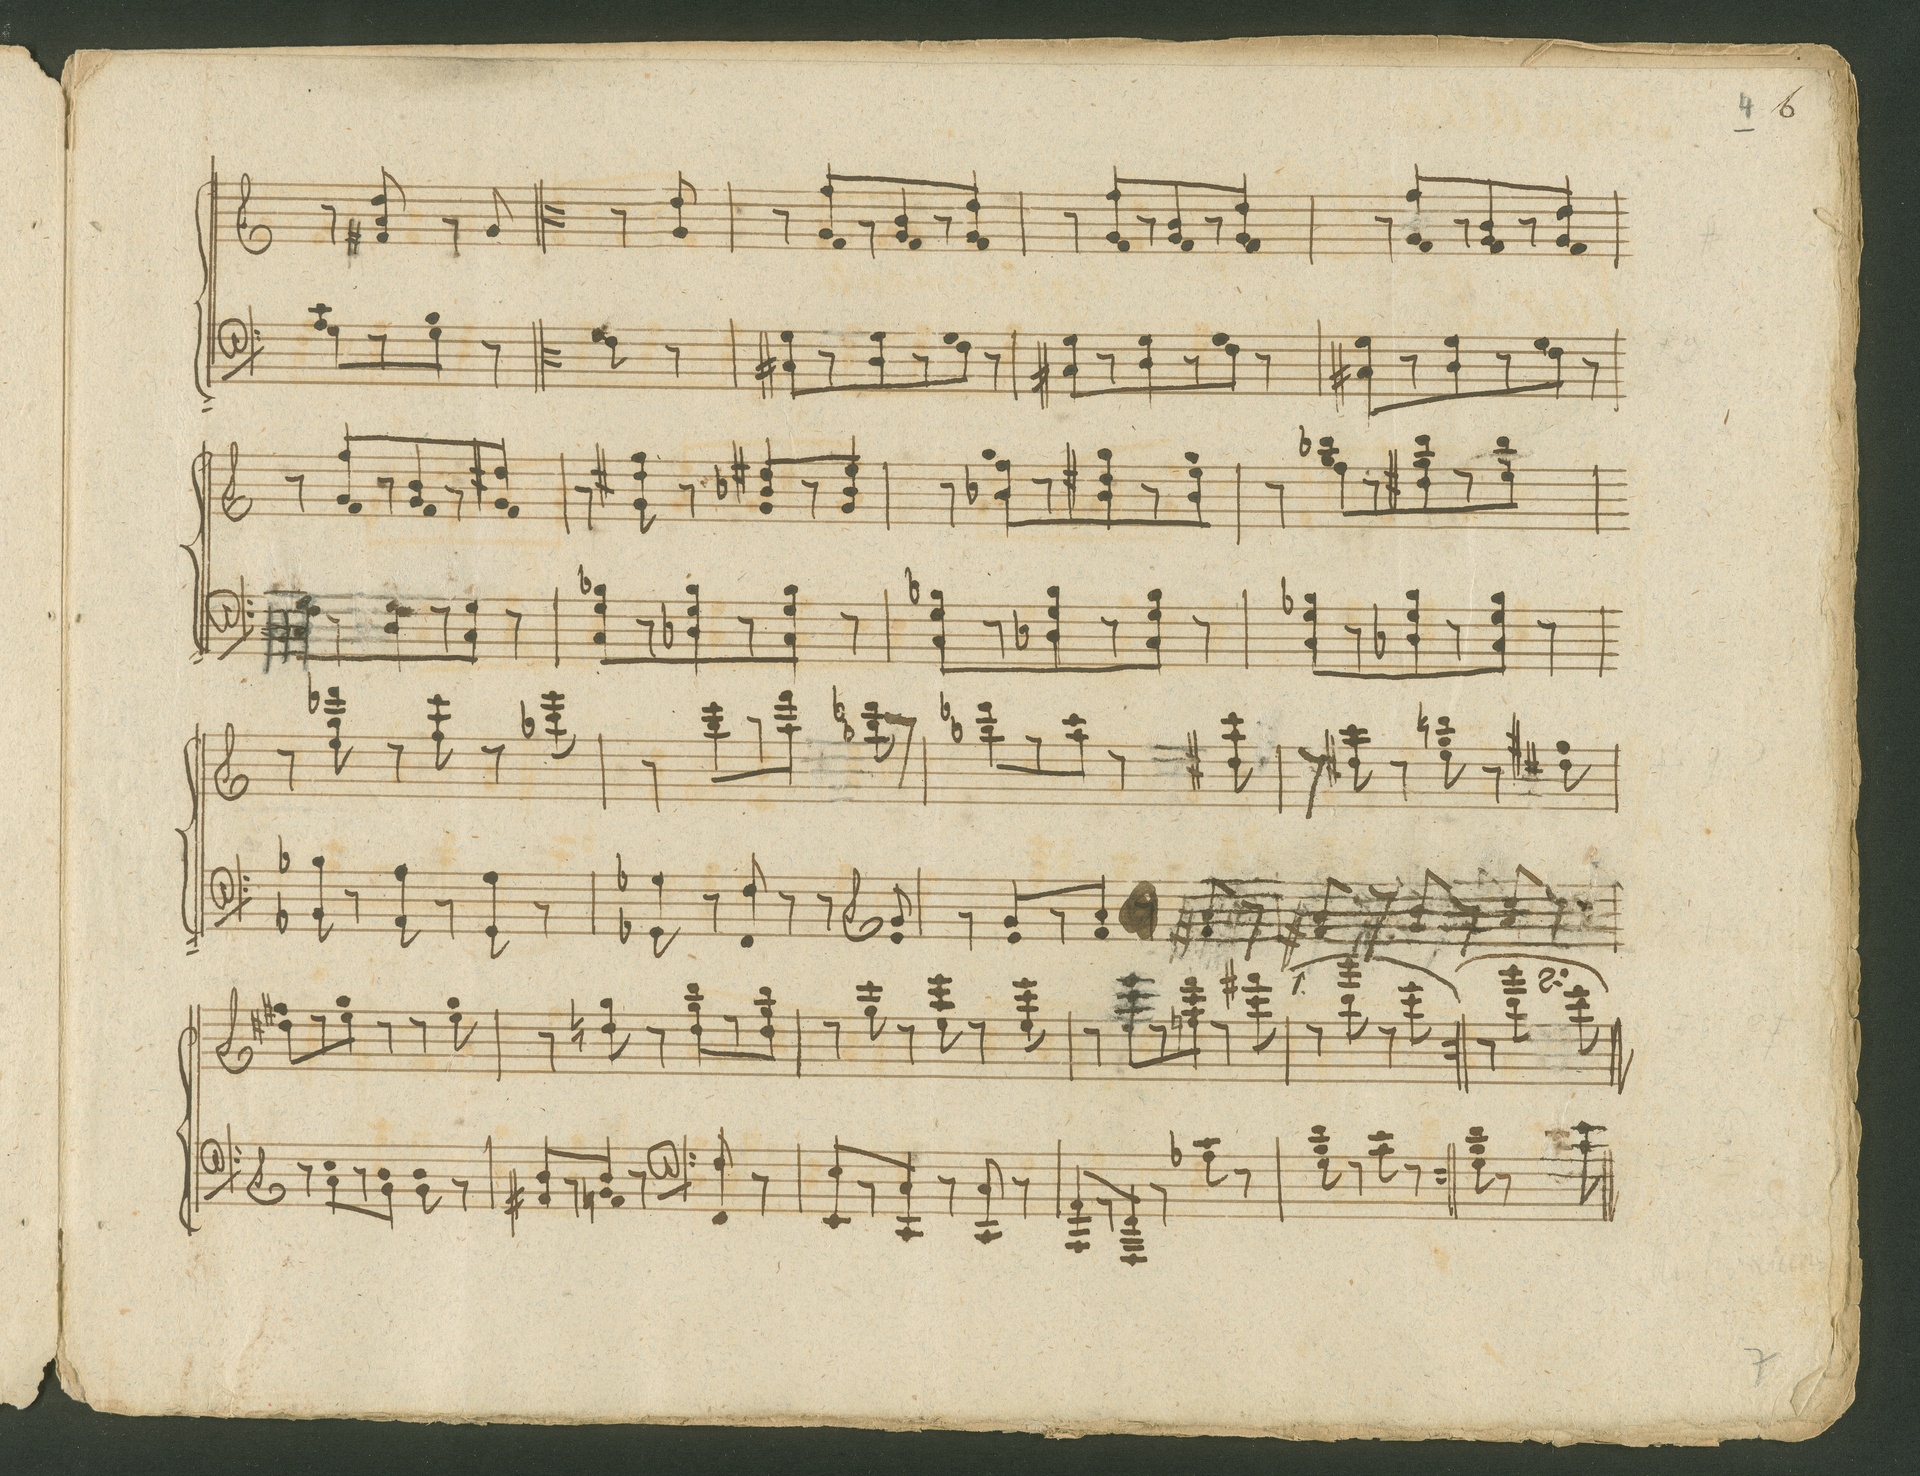 4 6
1. 2.
7